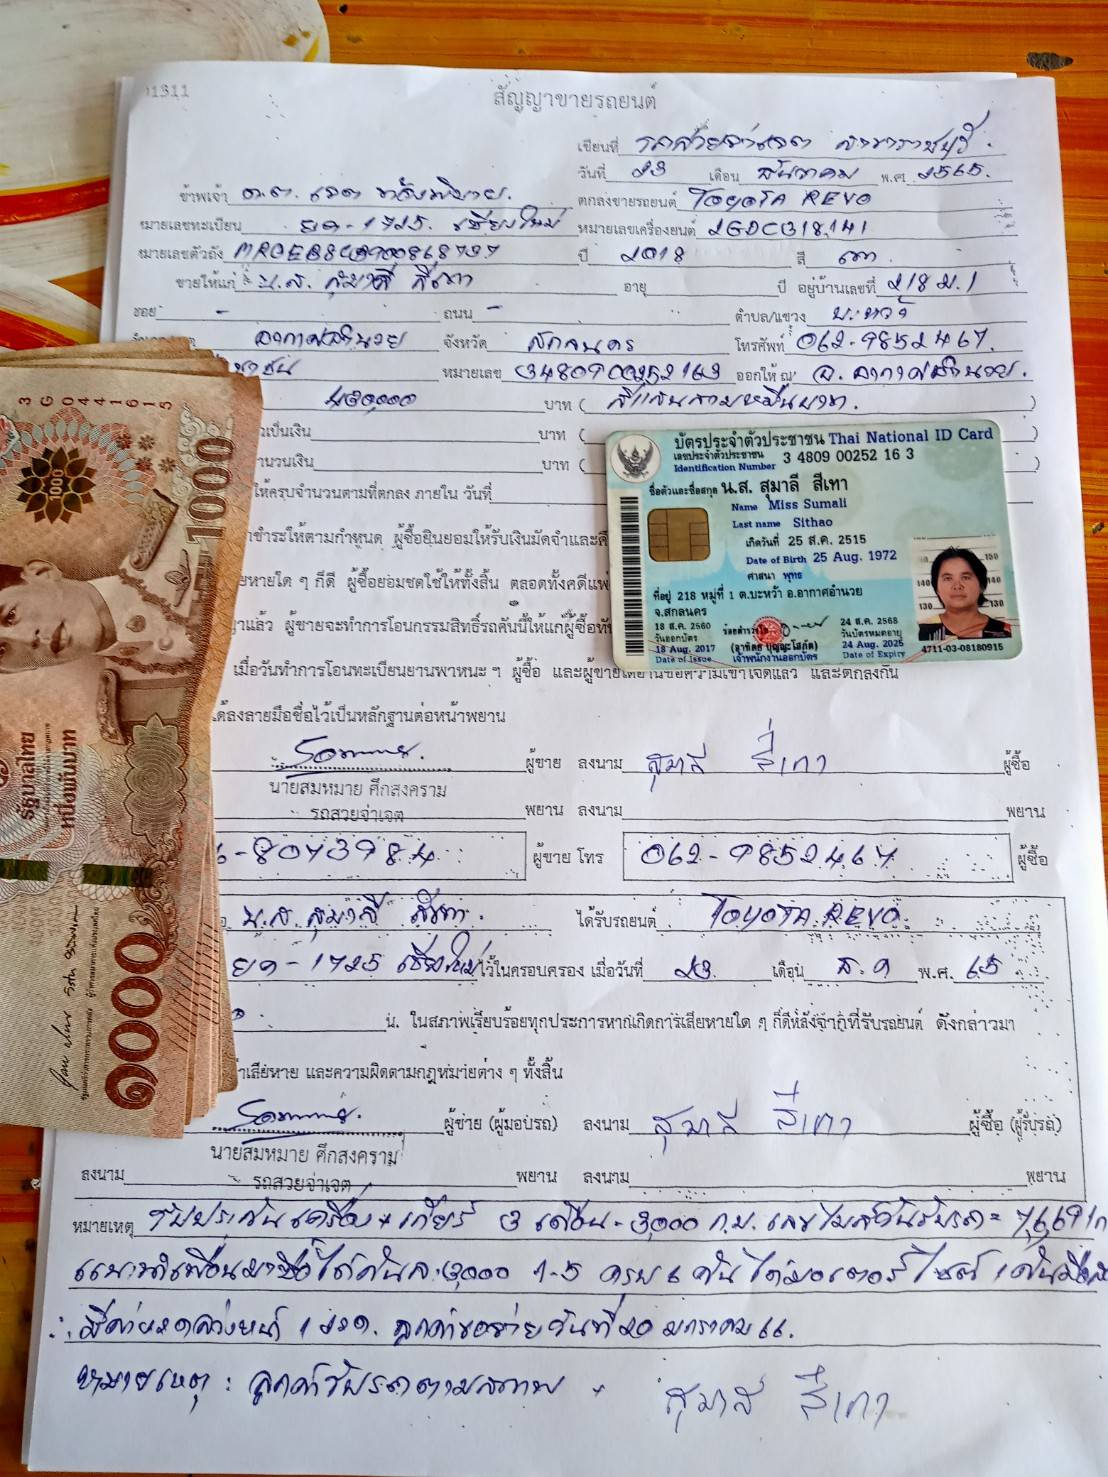 1311
สัญญาขายรถยนต์
เขียนที่ รถสวยจ่าเจต สาขาราชบุรี
วันที่ 23 เดือน ธันวาคม พ.ศ. 2565.
ข้าพเจ้า ด.ต. เจต ตกลงขายรถยนต์ TOYOTA REVO
หมายเลขทะเบียน ยก-1725 เชียงใหม่ หมายเลขเครื่องยนต์
หมายเลขตัวถัง ปี 2018 สี เทา
ขายให้แก่ น.ส. สุมาลี สีเทา อายุ ปี อยู่บ้านเลขที่ 218 ม.1
ซอย - ถนน - ตำบล/แขวง บะหว้า
อากาศอำนวย จังหวัด สกลนคร โทรศัพท์ 062-9852467.
หมายเลข 3480900252163 ออกให้ ณ อ. อากาศอำนวย.
430,000 บาท ( สี่แสนสามหมื่นบาท. )
เป็นเงิน บาท (
จำนวนเงิน บาท ( )
ให้ครบจำนวนตามที่ตกลง ภายใน วันที่
ชำระให้ตามกำหนด ผู้ซื้อยินยอมให้ริบเงินมัดจำและ
หายใด ๆ ก็ดี ผู้ซื้อยอมชดใช้ให้ทั้งสิ้น ตลอดทั้งคดีแพ่ง
แล้ว ผู้ขายจะทำการโอนกรรมสิทธิ์รถคันนี้ให้แก่ผู้ซื้อ
เมื่อวันทำการโอนทะเบียนยานพาหนะ ฯ ผู้ซื้อ และผู้ขายได้อ่านข้อความเข้าใจแล้ว และตกลงกัน
ได้ลงลายมือชื่อไว้เป็นหลักฐานต่อหน้าพยาน
ผู้ขาย ลงนาม สุมาลี สีเทา ผู้ซื้อ
นายสมหมาย ศึกสงคราม
รถสวยจ่าเจต พยาน ลงนาม พยาน
-8073984 ผู้ขาย โทร 062-9852467 ผู้ซื้อ
น.ส. สุมาลี สีเทา. ได้รับรถยนต์ TOYOTA REVO
ยก-1725 เชียงใหม่ ไว้ในครอบครอง เมื่อวันที่ 23 เดือน ธ.ค พ.ศ. 65
น. ในสภาพเรียบร้อยทุกประการหากเกิดการเสียหายใด ๆ ก็ดีหลังจากที่รับรถยนต์ ดังกล่าวมา
เสียหาย และความผิดตามกฎหมายต่าง ๆ ทั้งสิ้น
ผู้ขาย (ผู้มอบรถ) ลงนาม สุมาลี สีเทา ผู้ซื้อ (ผู้รับรถ)
นายสมหมาย ศึกสงคราม
ลงนาม รถสวยจ่าเจต พยาน ลงนาม พยาน
หมายเหตุ รับประกันเครื่อง+เกียร์ 3 เดือน-3,000 ก.ม. เลขไมล์วันรับรถ =
แนะนำเพื่อนมาซื้อได้คันละ 3,000 1-5 ครบ 6 คันได้มอเตอร์ไซค์ 1 คัน
ล่วงหน้า 1 งวด. ลูกค้า วันที่ 20 มกราคม 66.
หมายเหตุ : ลูกค้ารับรถตามสภาพ
สุมาลี สีเทา
บัตรประจำตัวประชาชน Thai National ID Card
เลขประจำตัวประชาชน 3 4809 00252 16 3
Identification Number
ชื่อตัวและชื่อสกุล น.ส. สุมาลี สีเทา
Name Miss Sumali
Last name Sithao
เกิดวันที่ 25 ส.ค. 2515
Date of Birth 25 Aug. 1972
ศาสนา พุทธ
ที่อยู่ 218 หมู่ที่ 1 ต.บะหว้า อ.อากาศอำนวย
จ.สกลนคร
18 ส.ค. 2560
วันออกบัตร
18 Aug. 2017
Date of Issue
เจ้าพนักงานออกบัตร
24 ส.ค. 2568
วันบัตรหมดอายุ
24 Aug. 2025
Date of Expiry
150
140
130
4711-03-08180915
3 G 0441615
1000
1000
รัฐบาลไทย
หนึ่งพันบาท
๑๐๐๐